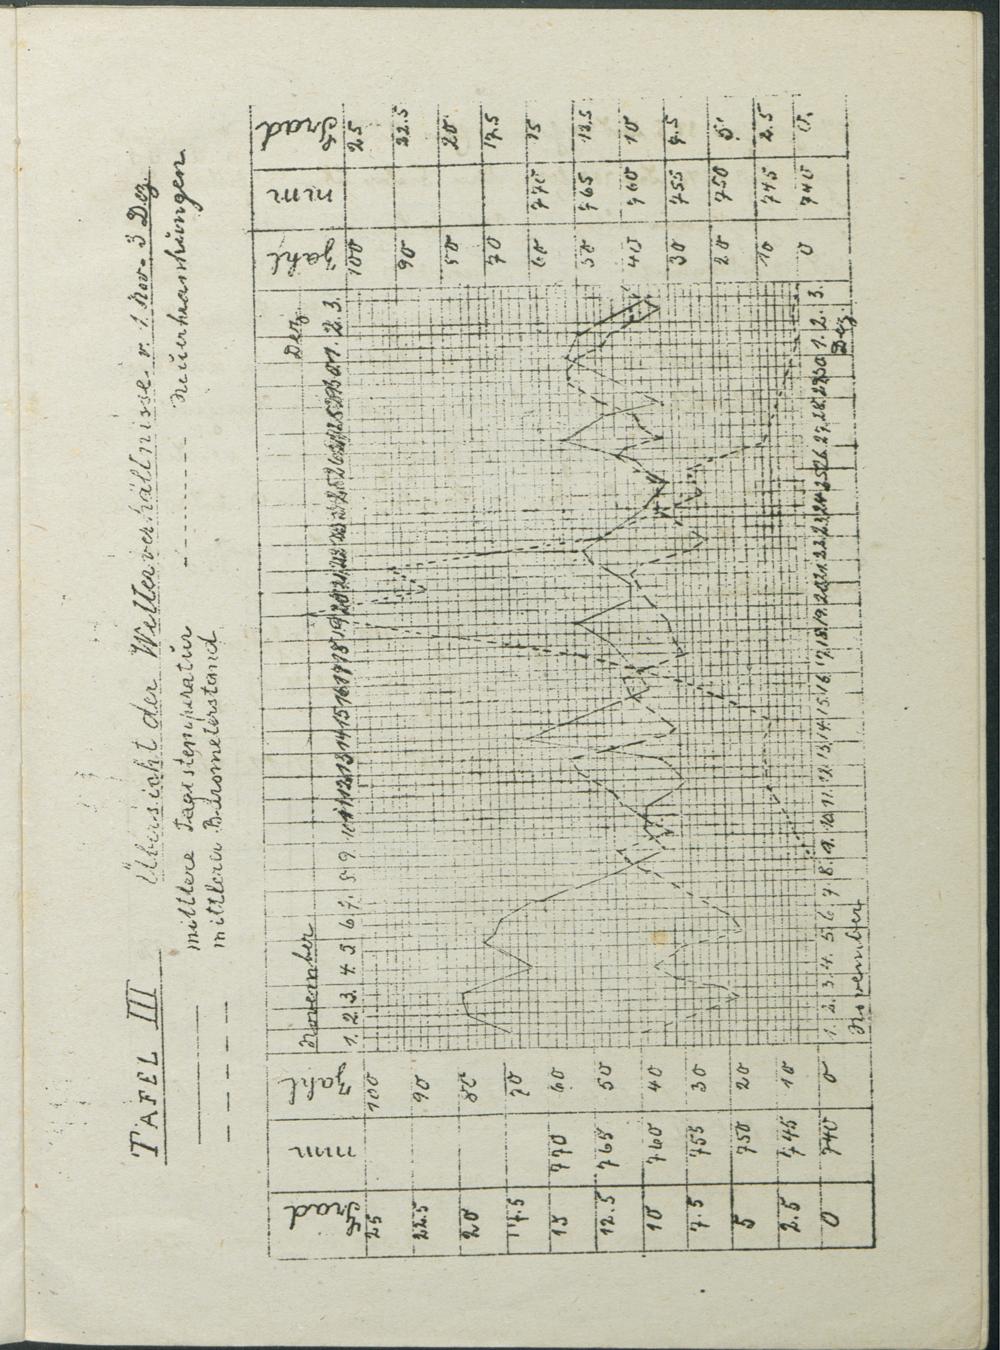 TAFEL III
Übersicht der Witterverhältnisse v. 1. Nov - 3 Dez.
mittlere Tagestemperatur
Neuerkrankungen
mittlerer Barometerstand
November
Dez.
Grad mm Zahl 1. 2. 3. 4. 5 6 7. 8 9. 10 11 12 13 14 15 16 17 18 19 20 21 22 23 24 25 26 27 28 29 30 1. 2. 3. Zahl mm Grad
25 100 100 25
22.5 90 90 22.5
20 80 80 20
17.5 70 70 17.5
15 770 60 60 770 15
12.5 765 50 50 765 12.5
10 760 40 40 760 10
7.5 755 30 30 755 7.5
5 750 20 20 750 5
2.5 745 10 10 745 2.5
0 740 0 0 740 0.
1. 2. 3. 4. 5. 6. 7. 8. 9. 10. 11. 12. 13. 14. 15. 16. 17. 18. 19. 20. 21. 22. 23. 24. 25. 26. 27. 28. 29. 30. 1. 2. 3.
November
Dez.